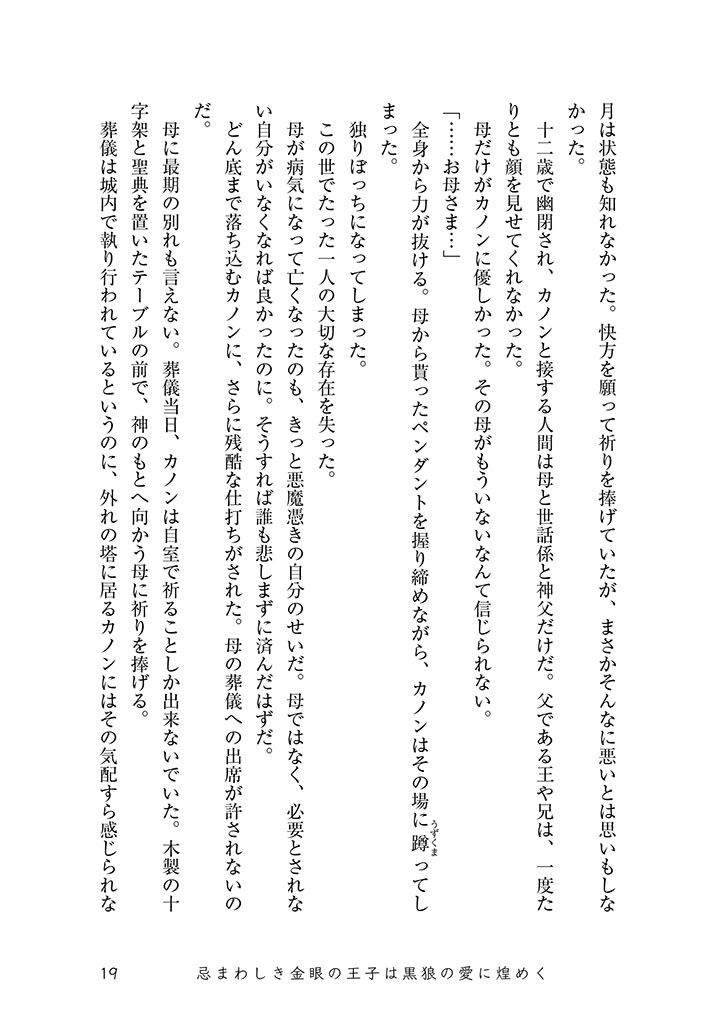 月は状態も知れなかった。快方を願って祈りを捧げていたが、まさかそんなに悪いとは思いもしな
かった。
十二歳で幽閉され、カノンと接する人間は母と世話係と神父だけだ。父である王や兄は、一度た
りとも顔を見せてくれなかった。
母だけがカノンに優しかった。その母がもういないなんて信じられない。
「……お母さま…」
全身から力が抜ける。母から貰ったペンダントを握り締めながら、カノンはその場に蹲ってし
うずくま
まった。
独りぼっちになってしまった。
この世でたった一人の大切な存在を失った。
母が病気になって亡くなったのも、きっと悪魔憑きの自分のせいだ。母ではなく、必要とされな
い自分がいなくなれば良かったのに。そうすれば誰も悲しまずに済んだはずだ。
どん底まで落ち込むカノンに、さらに残酷な仕打ちがされた。母の葬儀への出席が許されないの
だ。
母に最期の別れも言えない。葬儀当日、カノンは自室で祈ることしか出来ないでいた。木製の十
字架と聖典を置いたテーブルの前で、神のもとへ向かう母に祈りを捧げる。
葬儀は城内で執り行われているというのに、外れの塔に居るカノンにはその気配すら感じられな
19
忌まわしき金眼の王子は黒狼の愛に煌めく